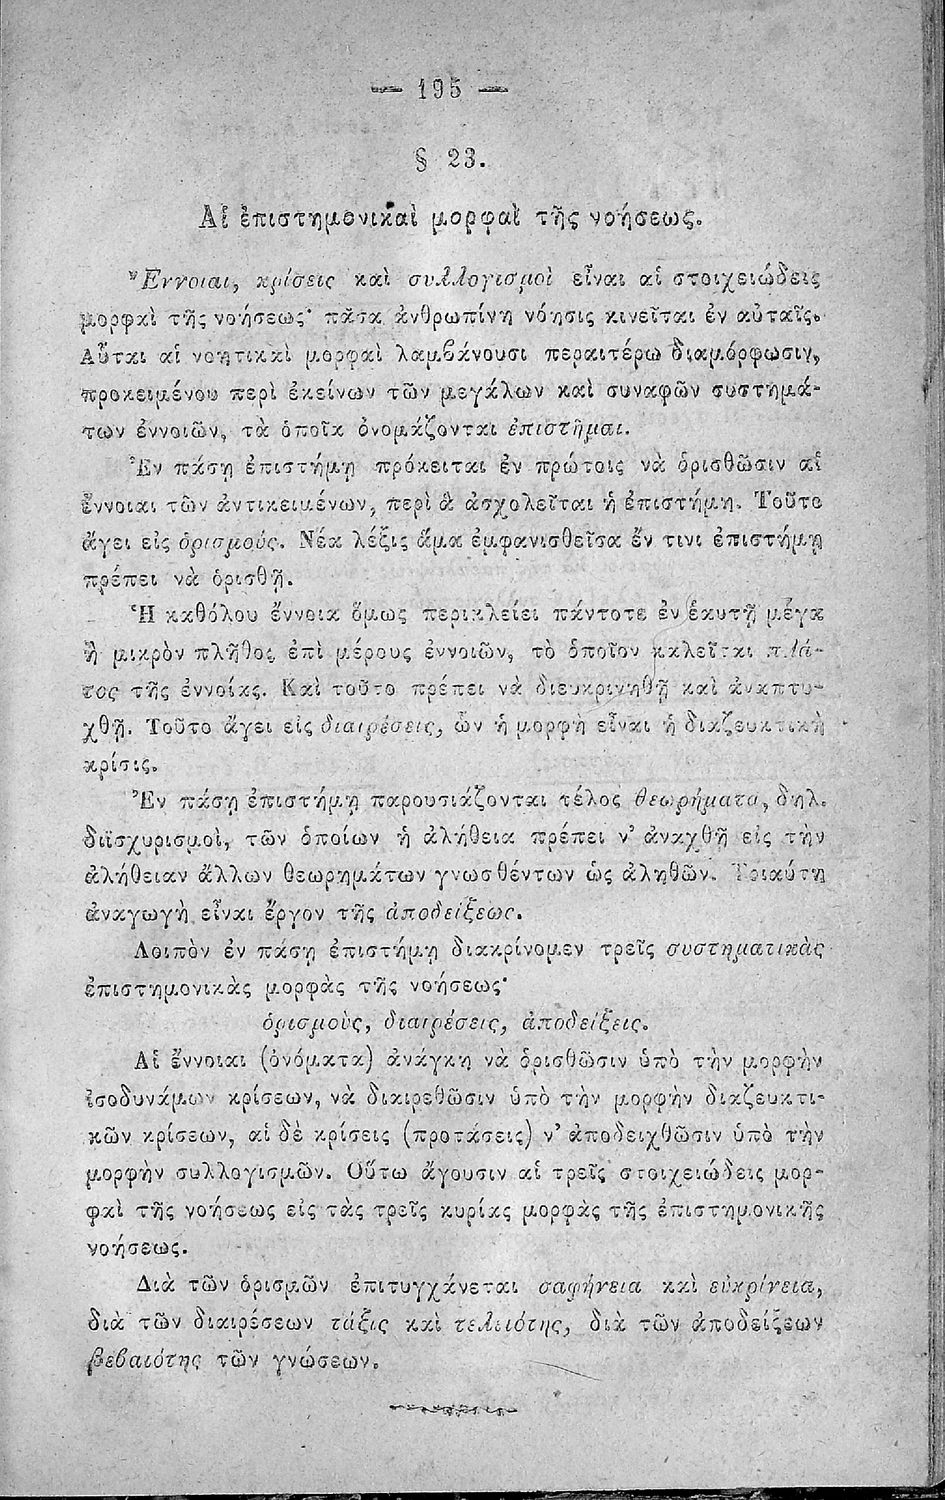 — 195 —
§ 23.
Αἱ ἐπιστημονικαὶ μορφαὶ τῆς νοήσεως.
Ἔννοιαι, κρίσεις καὶ συλλογισμοὶ εἶναι αἱ στοιχειώδεις
μορφαὶ τῆς νοήσεως· πᾶσα ἀνθρωπίνη νόησις κινεῖται ἐν αὐταῖς.
Αὗται αἱ νοητικαὶ μορφαὶ λαμβάνουσι περαιτέρω διαμόρφωσιν,
προκειμένου περὶ ἐκείνων τῶν μεγάλων καὶ συναφῶν συστημά-
των ἐννοιῶν, τὰ ὁποῖα ὀνομάζονται ἐπιστῆμαι.
Ἐν πάσῃ ἐπιστήμῃ πρόκειται ἐν πρώτοις νὰ ὁρισθῶσιν αἱ
ἔννοιαι τῶν ἀντικειμένων, περὶ ἃ ἀσχολεῖται ἡ ἐπιστήμη. Τοῦτο
ἄγει εἰς ὁρισμούς. Νέα λέξις ἅμα ἐμφανισθεῖσα ἔν τινι ἐπιστήμῃ
πρέπει νὰ ὁρισθῇ.
Ἡ καθόλου ἔννοια ὅμως περικλείει πάντοτε ἐν ἑαυτῇ μέγα
ἢ μικρὸν πλῆθος ἐπὶ μέρους ἐννοιῶν, τὸ ὁποῖον καλεῖται πλά-
τος τῆς ἐννοίας. Καὶ τοῦτο πρέπει νὰ διευκρινηθῇ καὶ ἀναπτυ-
χθῇ. Τοῦτο ἄγει εἰς διαιρέσεις, ὧν ἡ μορφὴ εἶναι ἡ διαζευκτικὴ
κρίσις.
Ἐν πάσῃ ἐπιστήμῃ παρουσιάζονται τέλος θεωρήματα, δηλ.
διϊσχυρισμοὶ, τῶν ὁποίων ἡ ἀλήθεια πρέπει ν' ἀναχθῇ εἰς τὴν
ἀλήθειαν ἄλλων θεωρημάτων γνωσθέντων ὡς ἀληθῶν. Τοιαύτη
ἀναγωγὴ εἶναι ἔργον τῆς ἀποδείξεως.
Λοιπὸν ἐν πάσῃ ἐπιστήμῃ διακρίνομεν τρεῖς συστηματικὰς
ἐπιστημονικὰς μορφὰς τῆς νοήσεως·
ὁρισμοὺς, διαιρέσεις, ἀποδείξεις.
Αἱ ἔννοιαι (ὀνόματα) ἀνάγκη νὰ ὁρισθῶσιν ὑπὸ τὴν μορφὴν
ἰσοδυνάμων κρίσεων, νὰ διαιρεθῶσιν ὑπὸ τὴν μορφὴν διαζευκτι-
κῶν κρίσεων, αἱ δὲ κρίσεις (προτάσεις) ν' ἀποδειχθῶσιν ὑπὸ τὴν
μορφὴν συλλογισμῶν. Οὕτω ἄγουσιν αἱ τρεῖς στοιχειώδεις μορ-
φαὶ τῆς νοήσεως εἰς τὰς τρεῖς κυρίας μορφὰς τῆς ἐπιστημονικῆς
νοήσεως.
Διὰ τῶν ὁρισμῶν ἐπιτυγχάνεται σαφήνεια καὶ εὐκρίνεια,
διὰ τῶν διαιρέσεων τάξις καὶ τελειότης, διὰ τῶν ἀποδείξεων
βεβαιότης τῶν γνώσεων.